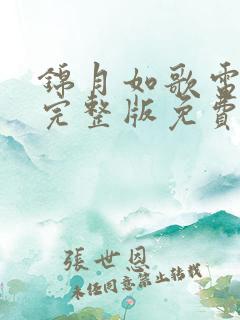 錦月如歌電
完整版免費
張世恩
未經同意禁止轉載